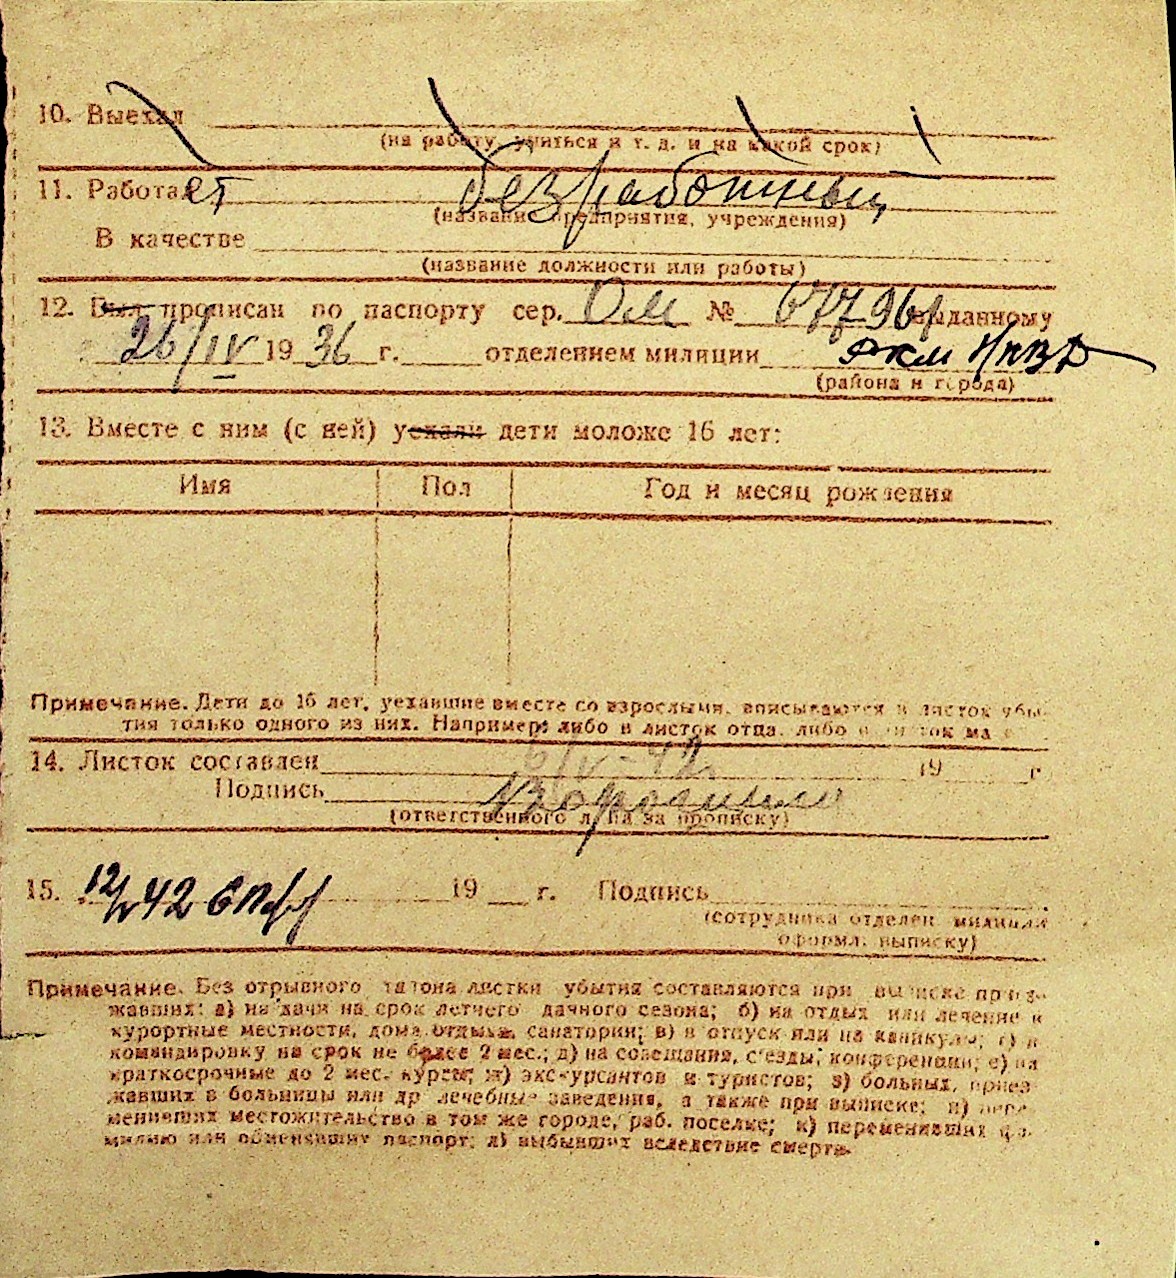 10. Выехал
(на работу, учиться и т. д. и на какой срок)
11. Работает безработный
(название предприятия, учреждения)
В качестве
(название должности или работы)
12. Был прописан по паспорту сер. ОМ № выданному
26/IV 1936 г. отделением милиции РКМ НКВД
(района и города)
13. Вместе с ним (с ней) уехали дети моложе 16 лет:
Имя Пол Год и месяц рождения
Примечание. Дети до 16 лет, уехавшие вместе со взрослыми, вписываются в листок убы-
тия только одного из них. Например: либо в листок отца, либо в листок ма
14. Листок составлен 6/V-42 19 г.
Подпись
(ответственного лица за прописку)
15. 12/V 42 19 г. Подпись
(сотрудника отделен. милиции
оформл. выписку)
Примечание. Без отрывного талона листки убытия составляются при выписке приез-
жавших: а) на дачи на срок летнего дачного сезона; б) на отдых или лечение в
курортные местности, дома отдыха, санатории; в) в отпуск или на каникулы; г) в
командировку на срок не более 2 мес.; д) на совещания, с'езды, конференции; е) на
краткосрочные до 2 мес. курсы; ж) экскурсантов и туристов; з) больных, приез-
жавших в больницы или др лечебные заведения, а также при выписке; и) пере-
менивших местожительство в том же городе, раб. поселке; к) переменивших фа-
милию или обменявших паспорт; л) выбывших вследствие смерти.